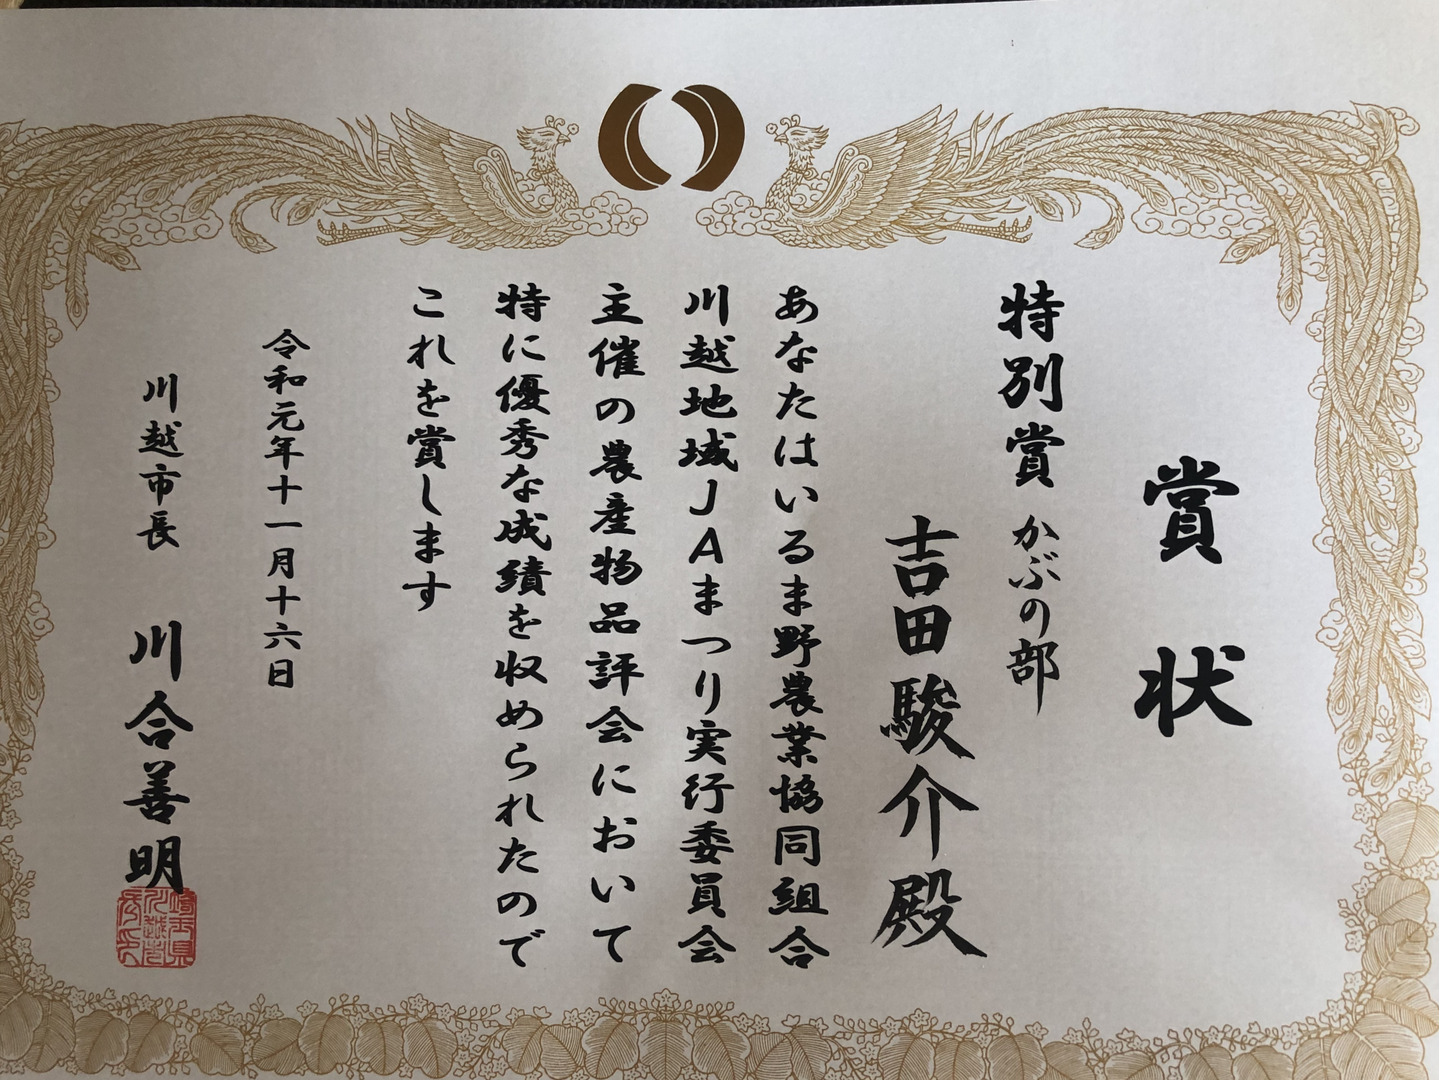 賞状
特別賞 かぶの部
吉田駿介殿
あなたはいるま野農業協同組合
川越地域JAまつり実行委員会
主催の農産物品評会において
特に優秀な成績を収められたので
これを賞します
令和元年十一月十六日
川越市長 川合善明